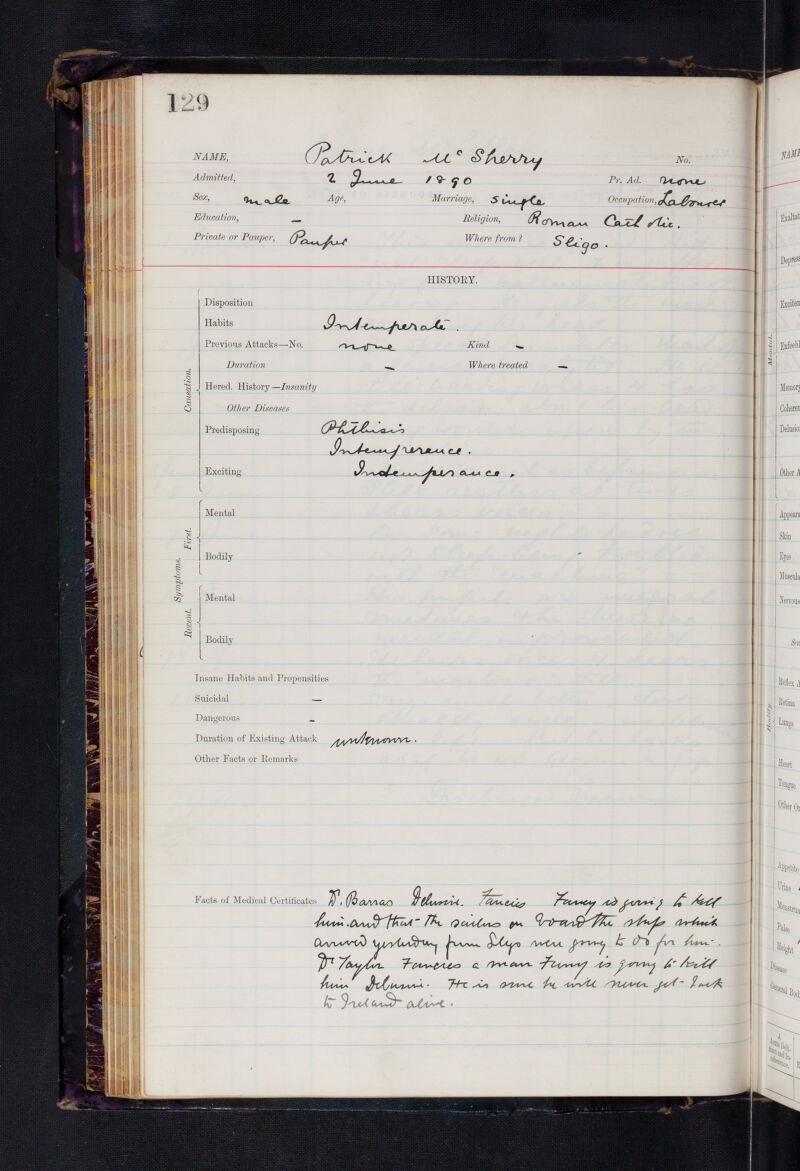 129
NAME, Patrick McSherry No.
Admitted, 2 June 1890 Pr. Ad. none
Sex, male Age, Marriage, single Occupation, Labourer
Education, — Religion, Roman Catholic.
Private or Pauper, Pauper Where from? Sligo.
HISTORY.
Causation.
Disposition
Habits Intemperate.
Previous Attacks—No. none Kind —
Duration — Where treated —
Hered. History—Insanity
Other Diseases
Predisposing Phthisis
Intemperence.
Exciting Intemperance.
Symptoms.
First.
Mental
Bodily
Recent.
Mental
Bodily
Insane Habits and Propensities
Suicidal —
Dangerous -
Duration of Existing Attack unknown.
Other Facts or Remarks
Facts of Medical Certificates Dr. Barras Delusive. Fancies is going to kill
him and that the sailors on board the ship which
arrived yesterday from Sligo were going to do for him.
Dr Taylor Fancies a man is going to kill
him. He is sure he will never get back
to Ireland alive.
NAME
Exaltat
Depress
Excitem
Enfeebl
Mental.
Memory
Coheren
Delusio
Other A
Appeara
Skin
Eyes
Muscula
Nervous
Reflex A
Retina
Bodily
Lungs
Heart
Tongue
Other Or
Appetite
Urine
Menstrua
Pulse
Height
Disease
General Bodi